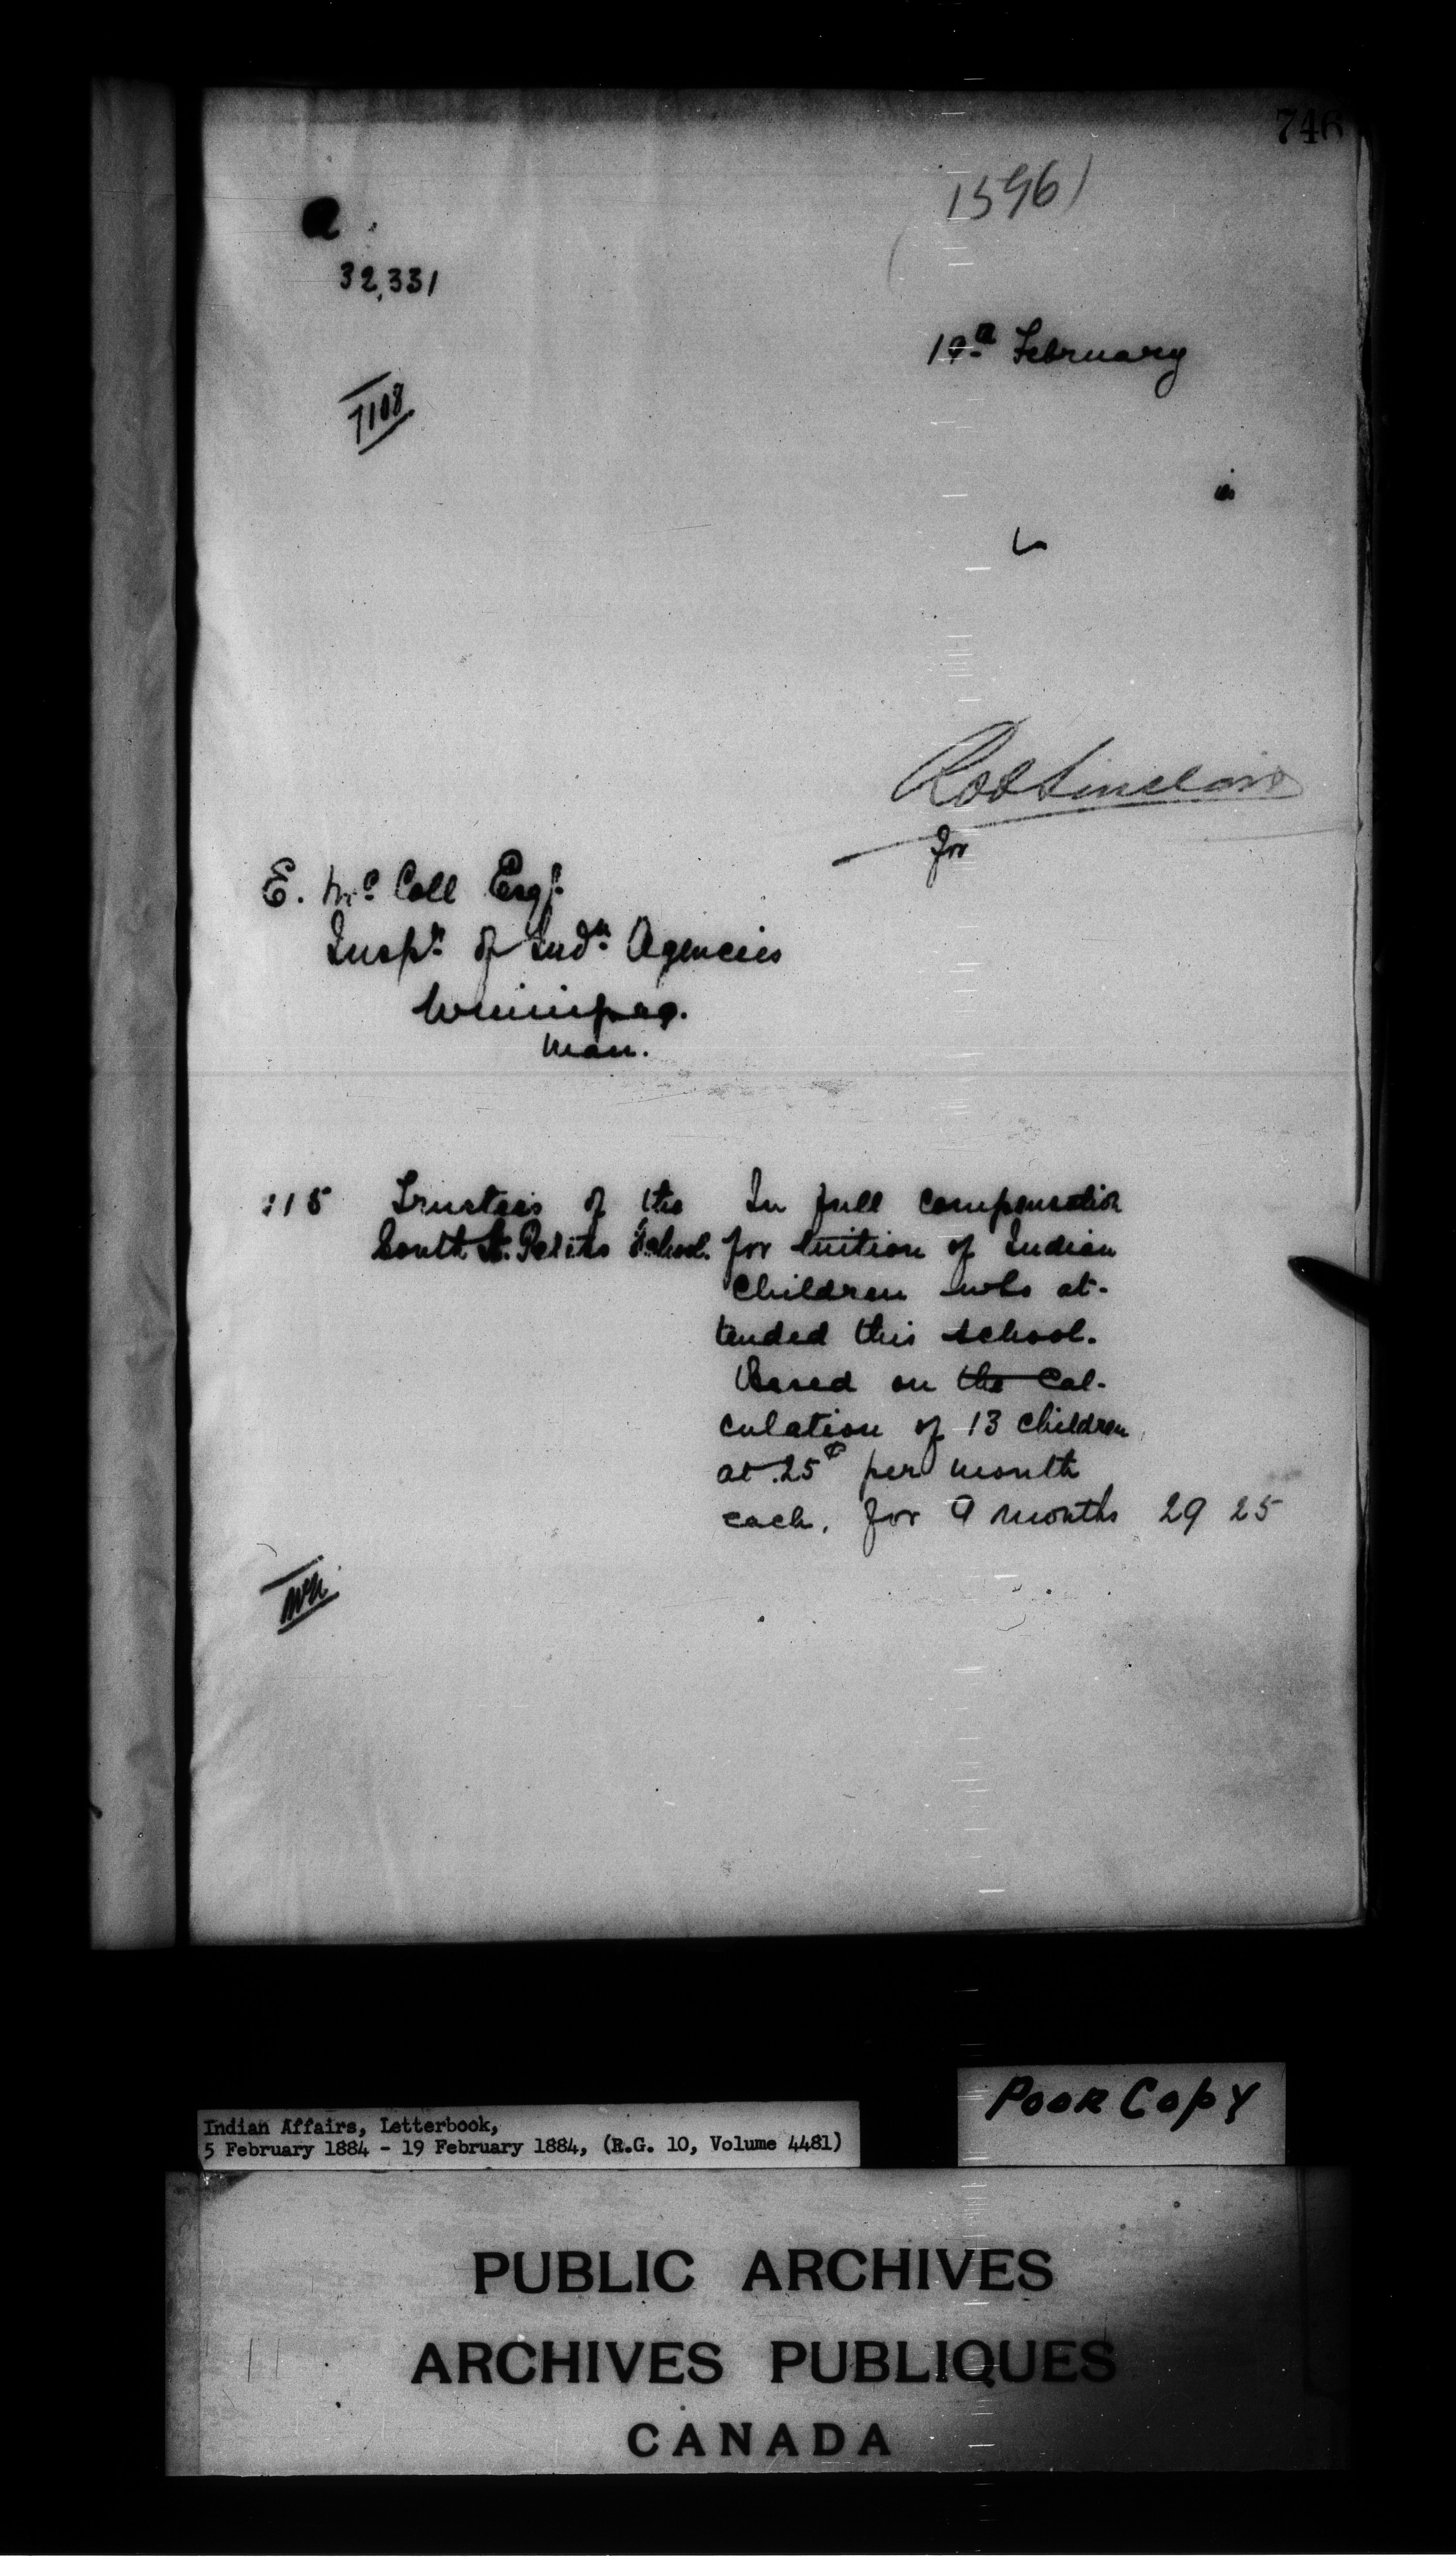 746
1596)
a.
32,331
19th February
7108
Rob Sinclair
for
E. McColl Esqr.
Inspr. of Indn. Agencies
Winnipeg.
Man.
115 Trustees of the In full compensation
South St. Peters School. for tuition of Indian
Children who at-
tended this school.
Based on the Cal-
culation of 13 children
at 25¢ per month
each. for 9 months 29 25
Poor Copy
Indian Affairs, Letterbook,
5 February 1884 - 19 February 1884, (R.G. 10, Volume 4481)
PUBLIC ARCHIVES
ARCHIVES PUBLIQUES
CANADA